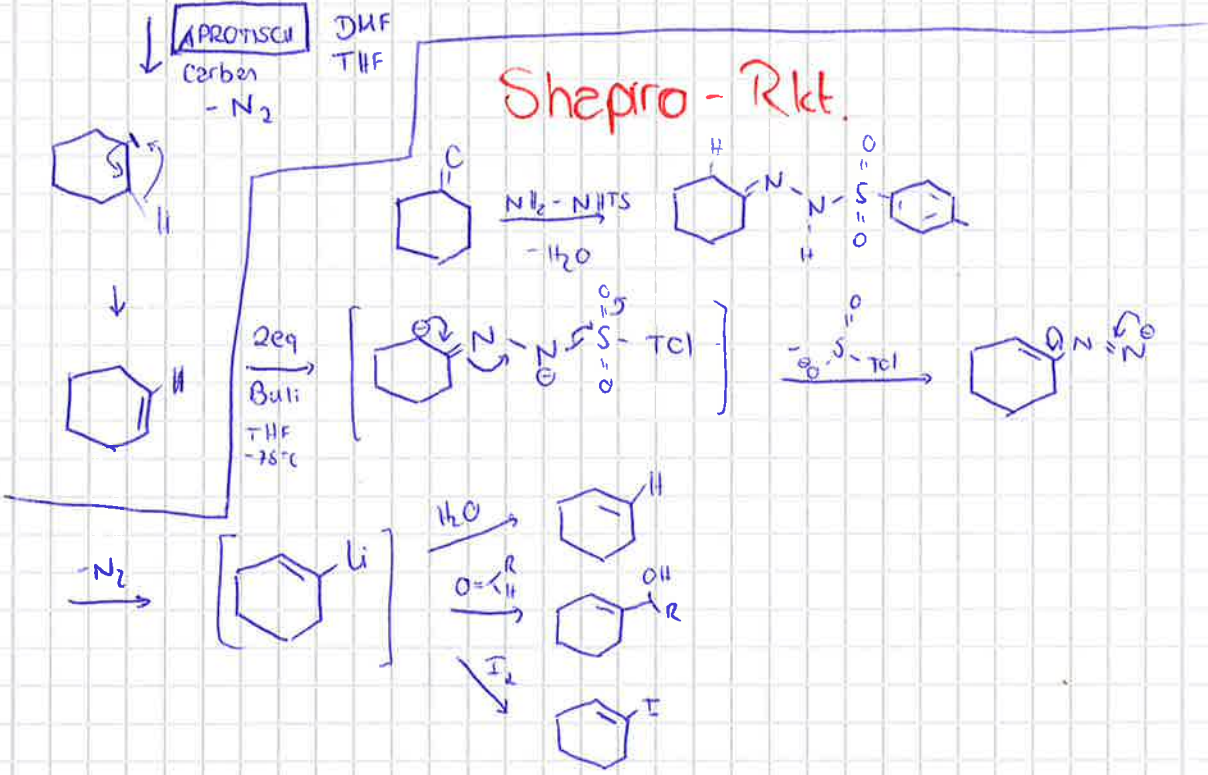 APROTISCH DMF
Carben THF
- N2
H
H
Shapiro - Rkt.
O
NH2 - NHTS
- H2O
H
N
N
H
O
S
O
2eq
BuLi
THF
-78°C
⊖
N
N
⊖
O
S - Tol
O
O
⊖O S Tol
N = N ⊖
-N2
Li
H2O
H
O= R
H
OH
R
I2
I